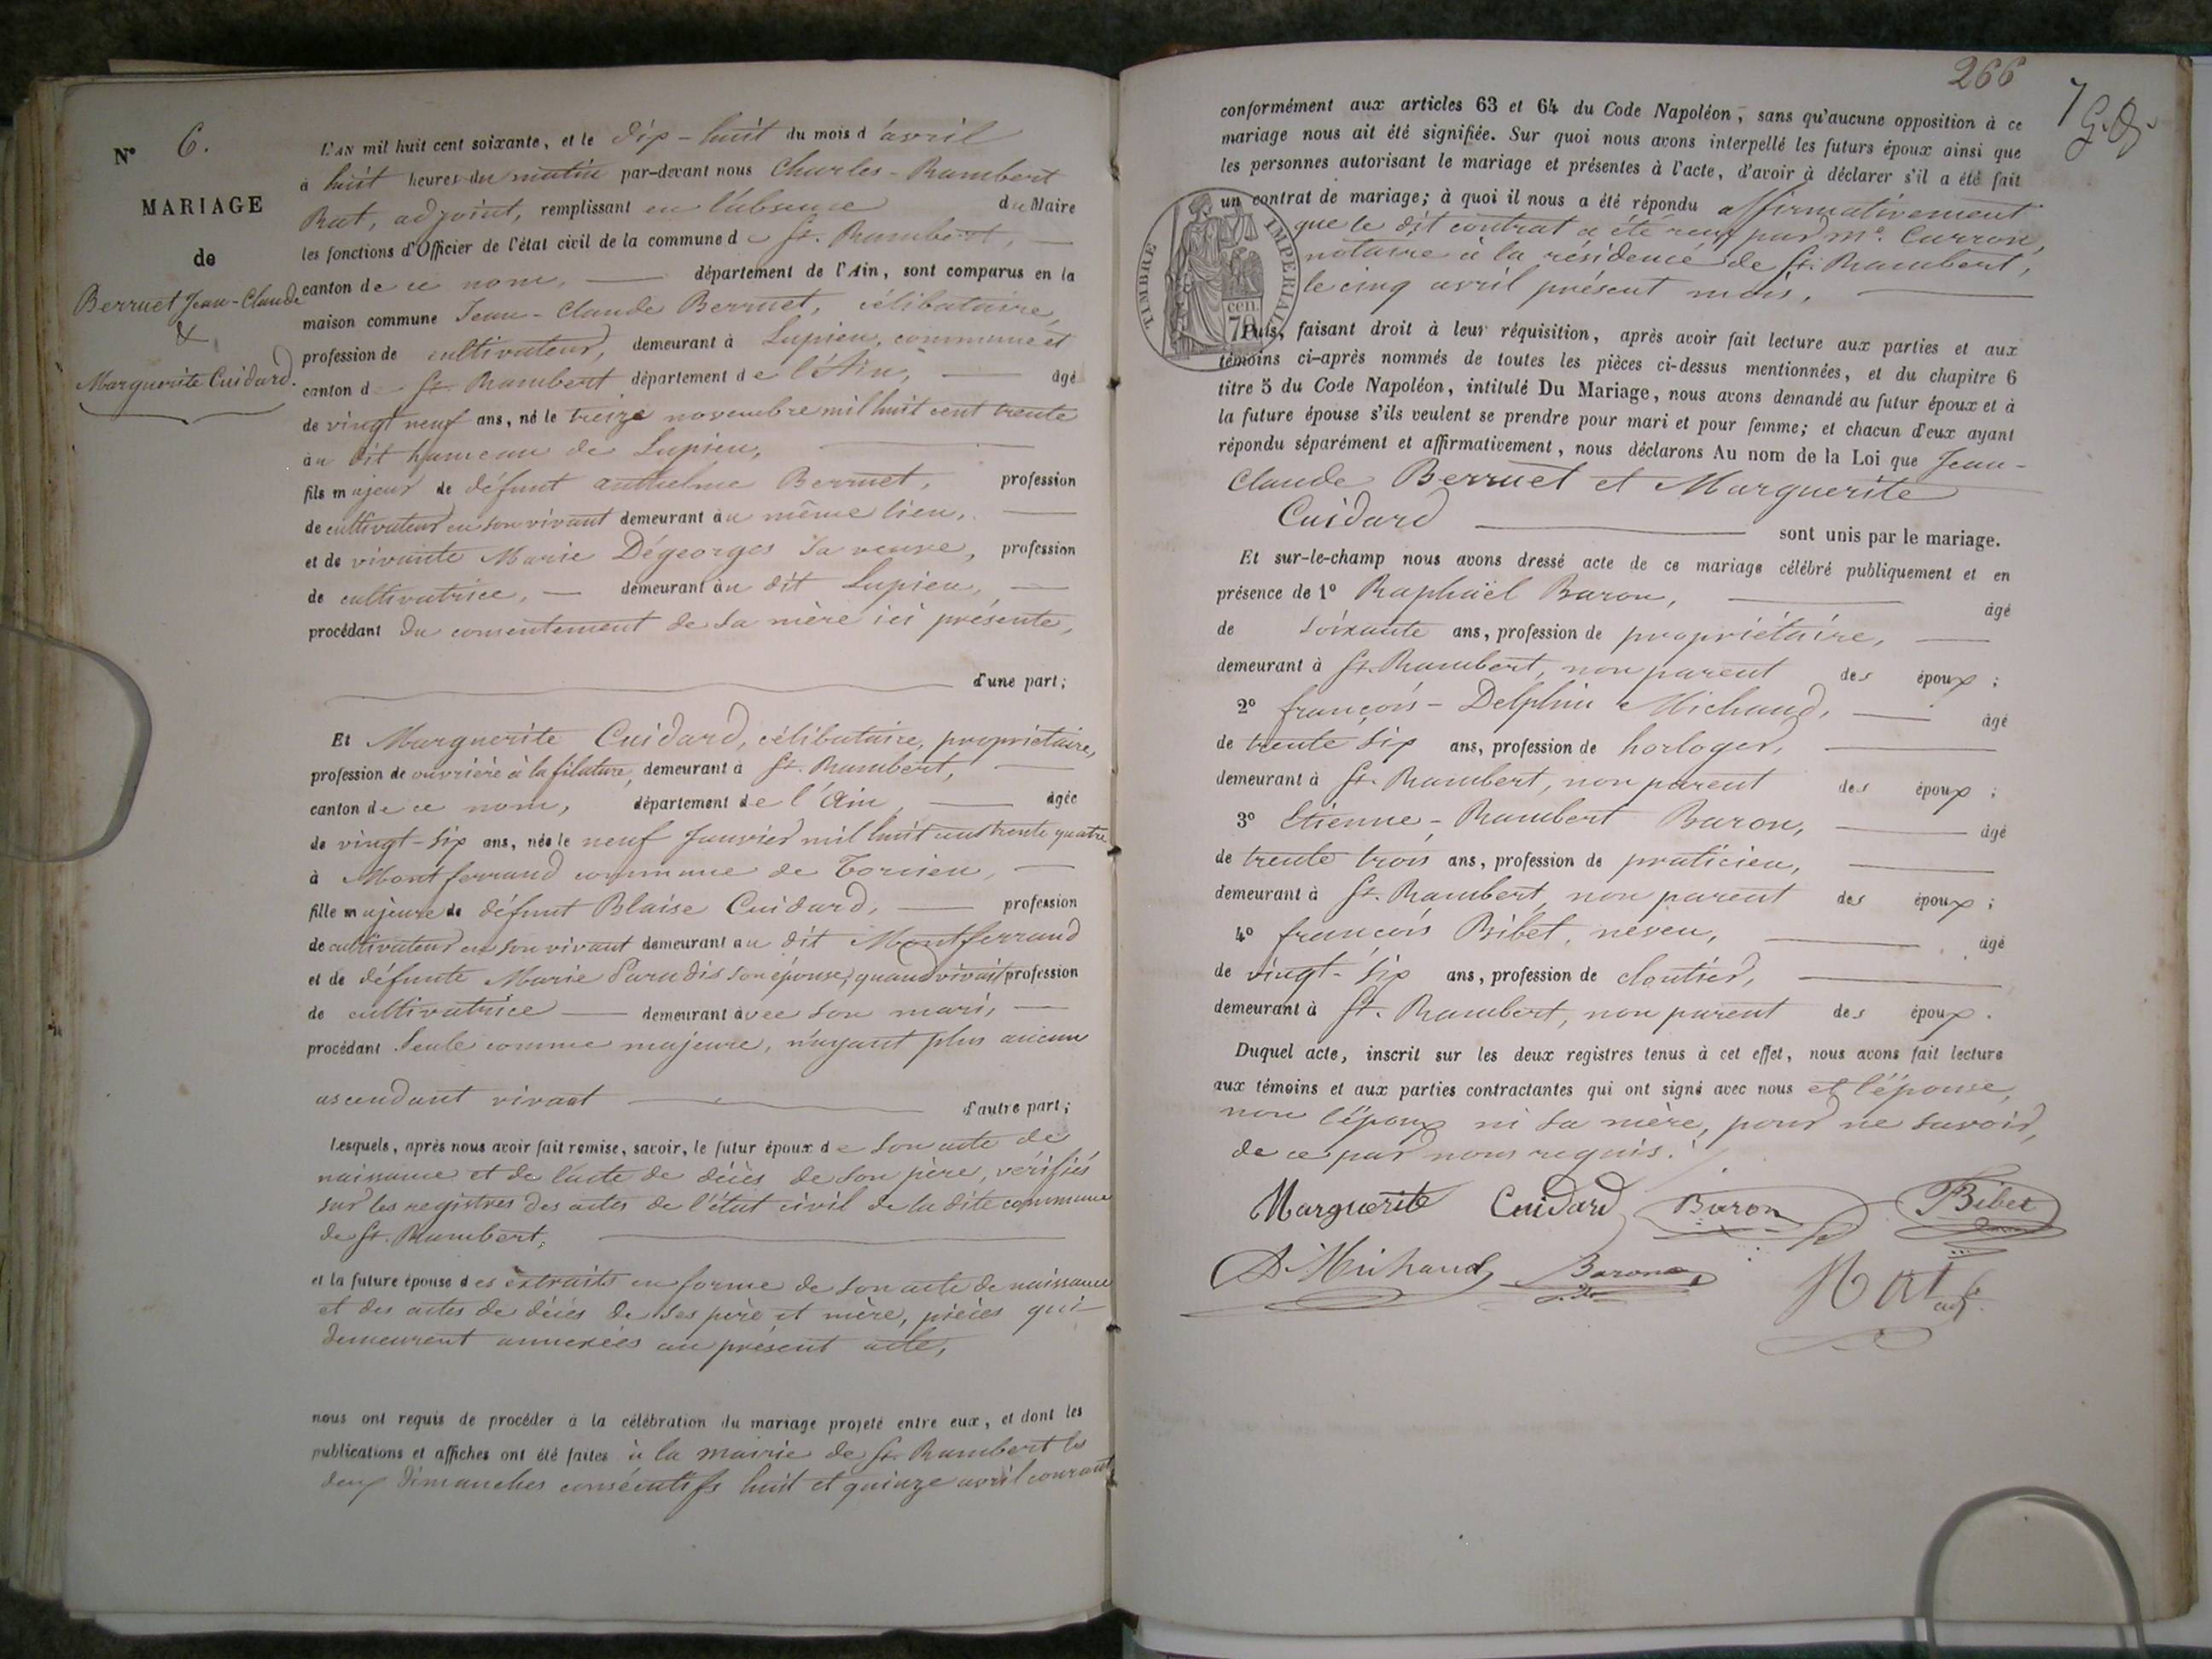 N° 6.
MARIAGE
de
Berruet Jean-Claude
&
Marguerite Cuidard.
L'AN mil huit cent soixante, et le dix-huit du mois d'avril
à huit heures du matin par-devant nous Charles-Rambert
Rat, adjoint, remplissant en l'absence du Maire
les fonctions d'Officier de l'état civil de la commune de St. Rambert,
canton de ce nom, département de l'Ain, sont comparus en la
maison commune Jean-Claude Berruet, célibataire,
profession de cultivateur, demeurant à Lupieu, commune et
canton de St. Rambert département de l'Ain, âgé
de vingt neuf ans, né le treize novembre mil huit cent trente
au dit hameau de Lupieu,
fils majeur de défunt anthelme Berruet, profession
de cultivateur en son vivant demeurant au même lieu,
et de vivante Marie Dégeorges sa veuve, profession
de cultivatrice, demeurant au dit Lupieu,
procédant du consentement de sa mère ici présente,
d'une part;
Et Marguerite Cuidard, célibataire, propriétaire,
profession de ouvrière à la filature, demeurant à St. Rambert,
canton de ce nom, département de l'Ain, âgée
de vingt-six ans, née le neuf Janvier mil huit cent trente quatre
à Montferrand commune de Torcieu,
fille majeure de défunt Blaise Cuidard, profession
de cultivateur en son vivant demeurant au dit Montferrand
et de défunte Marie Paradis son épouse, quand vivait profession
de cultivatrice demeurant avec son mari,
procédant seule comme majeure, n'ayant plus aucun
ascendant vivant d'autre part;
Lesquels, après nous avoir fait remise, savoir, le futur époux de son acte de
naissance et de l'acte de décès de son père, vérifiés
sur les registres des actes de l'état civil de la dite commune
de St. Rambert,
et la future épouse des extraits en forme de son acte de naissance
et des actes de décès de ses père et mère, pièces qui
demeurent annexées au présent acte,
nous ont requis de procéder à la célébration du mariage projeté entre eux, et dont les
publications et affiches ont été faites à la mairie de St. Rambert les
deux dimanches consécutifs huit et quinze avril courant
266
conformément aux articles 63 et 64 du Code Napoléon, sans qu'aucune opposition à ce
mariage nous ait été signifiée. Sur quoi nous avons interpellé les futurs époux ainsi que
les personnes autorisant le mariage et présentes à l'acte, d'avoir à déclarer s'il a été fait
un contrat de mariage; à quoi il nous a été répondu affirmativement
que le dit contrat a été reçu par Me. Carron,
notaire à la résidence de St. Rambert,
le cinq avril présent mois,
TIMBRE IMPERIAL
cen
70
Puis, faisant droit à leur réquisition, après avoir fait lecture aux parties et aux
témoins ci-après nommés de toutes les pièces ci-dessus mentionnées, et du chapitre 6
titre 5 du Code Napoléon, intitulé Du Mariage, nous avons demandé au futur époux et à
la future épouse s'ils veulent se prendre pour mari et pour femme; et chacun d'eux ayant
répondu séparément et affirmativement, nous déclarons Au nom de la Loi que Jean-
Claude Berruet et Marguerite
Cuidard sont unis par le mariage.
Et sur-le-champ nous avons dressé acte de ce mariage célébré publiquement et en
présence de 1° Raphaël Baron, âgé
de soixante ans, profession de propriétaire,
demeurant à St. Rambert, non parent des époux;
2° françois-Delphin Michaud, âgé
de trente six ans, profession de horloger,
demeurant à St. Rambert, non parent des époux;
3° Etienne-Rambert Baron, âgé
de trente trois ans, profession de praticien,
demeurant à St. Rambert, non parent des époux;
4° françois Bibet, neveu, âgé
de vingt-six ans, profession de cloutier,
demeurant à St. Rambert, non parent des époux.
Duquel acte, inscrit sur les deux registres tenus à cet effet, nous avons fait lecture
aux témoins et aux parties contractantes qui ont signé avec nous et l'épouse,
non l'époux ni sa mère, pour ne savoir,
de ce par nous requis.
Marguerite Cuidard Baron Bibet
D. Michaud Baron Rat adj.